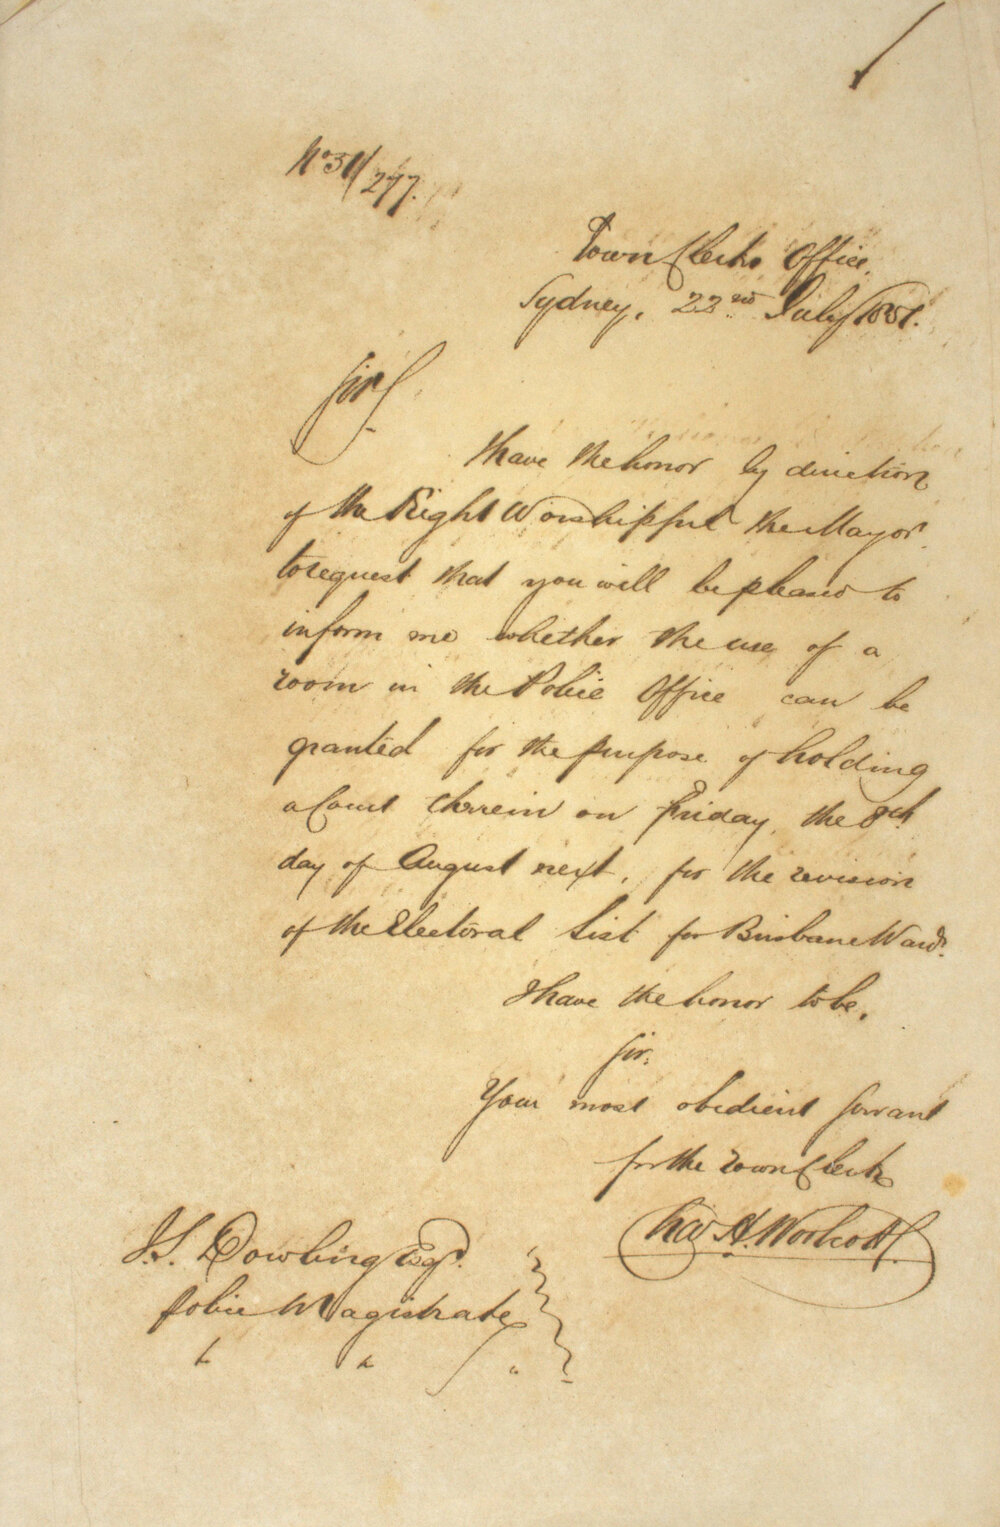 No 51/277.
Town Clerks Office,
Sydney, 22nd July 1851.
Sir,
I have the honor by direction
of the Right Worshipful the Mayor
to request that you will be pleased to
inform me whether the use of a
room in the Police Office can be
granted for the purpose of holding
a Court therein on Friday, the 8th
day of August next, for the revision
of the Electoral List for Brisbane Ward.
I have the honor to be,
Sir,
Your most obedient Servant
for the Town Clerk
Chas H. Woolcott
J. S. Dowling Esqr.
Police Magistrate
" " "